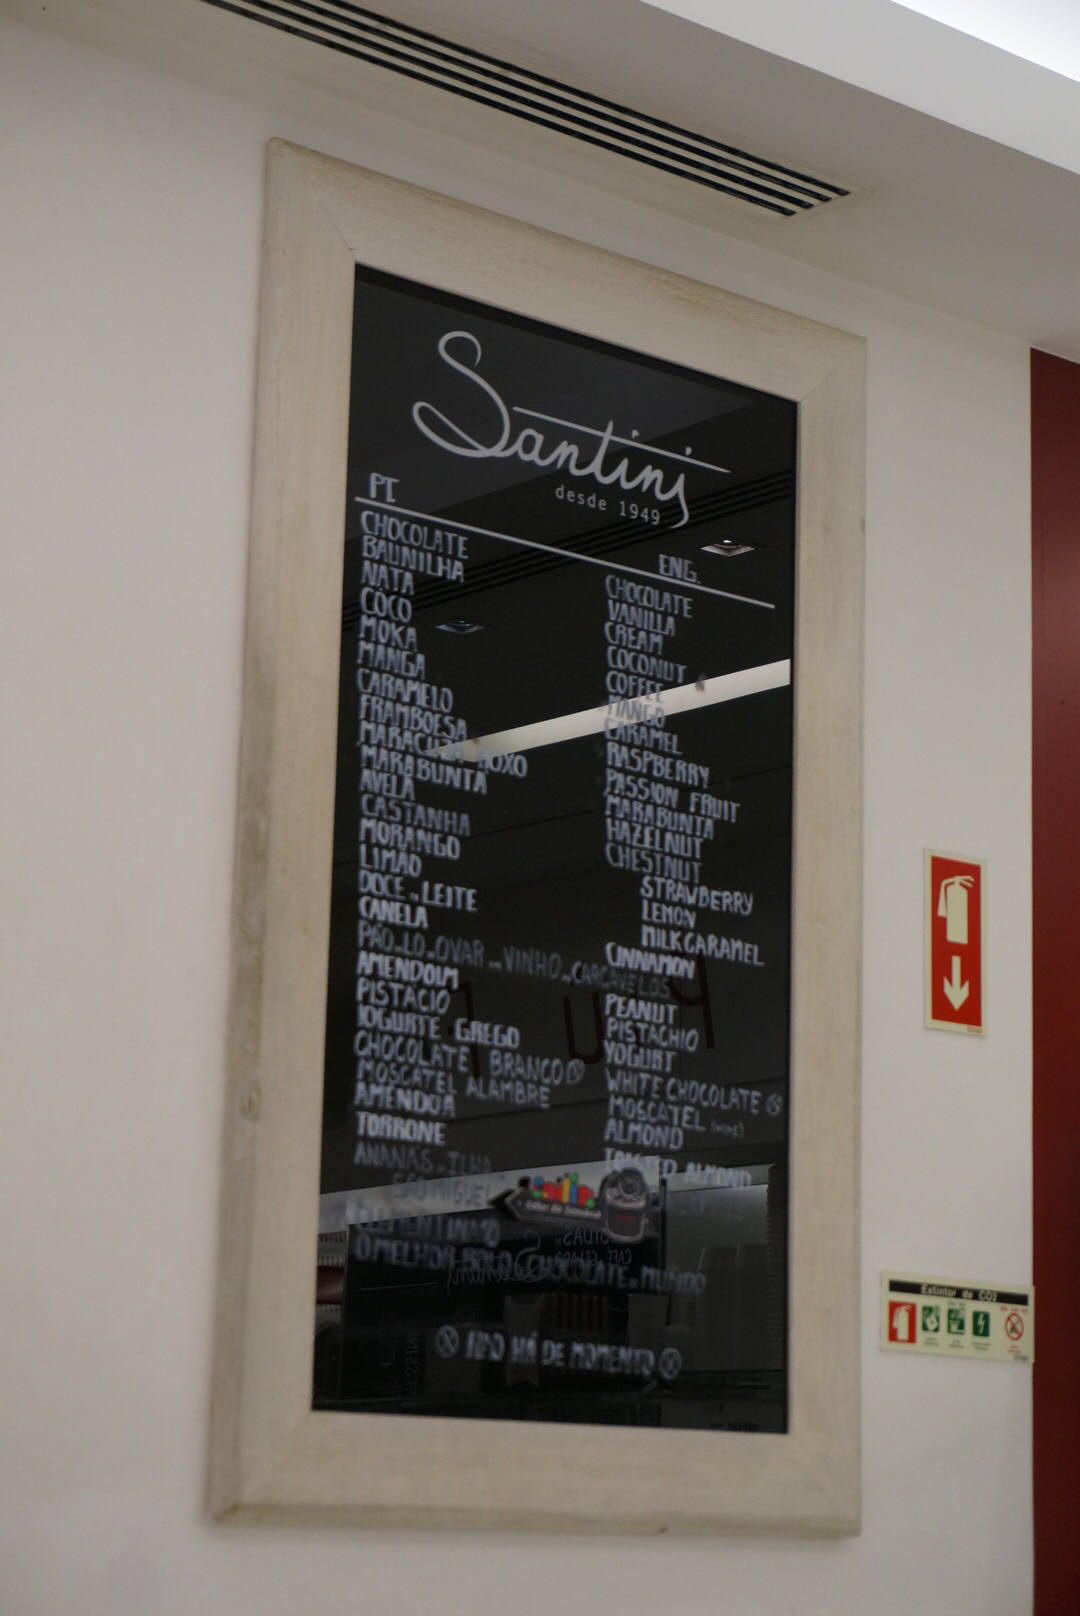 Santini
desde 1949
PT.
CHOCOLATE
BAUNILHA
NATA
COCO
MOKA
MANGA
CARAMELO
FRAMBOESA
MARACUJÁ ROXO
MARABUNTA
AVELÃ
CASTANHA
MORANGO
LIMÃO
DOCE DE LEITE
CANELA
PÃO LÓ OVAR VINHO CARCAVELOS
AMENDOIM
PISTÁCIO
IOGURTE GREGO
CHOCOLATE BRANCO ⊗
MOSCATEL ALAMBRE
AMENDOA
TORRONE
ANANÁS ILHA
SÃO MIGUEL
CLEMENTINA
O MELHOR BOLO CHOCOLATE MUNDO
⊗ NÃO HÁ DE MOMENTO ⊗
ENG.
CHOCOLATE
VANILLA
CREAM
COCONUT
COFFEE
MANGO
CARAMEL
RASPBERRY
PASSION FRUIT
MARABUNTA
HAZELNUT
CHESTNUT
STRAWBERRY
LEMON
MILK CARAMEL
CINNAMON
PEANUT
PISTACHIO
YOGURT
WHITE CHOCOLATE ⊗
MOSCATEL (WINE)
ALMOND
TOASTED ALMOND
Sabor da Semana
Extintor de CO2